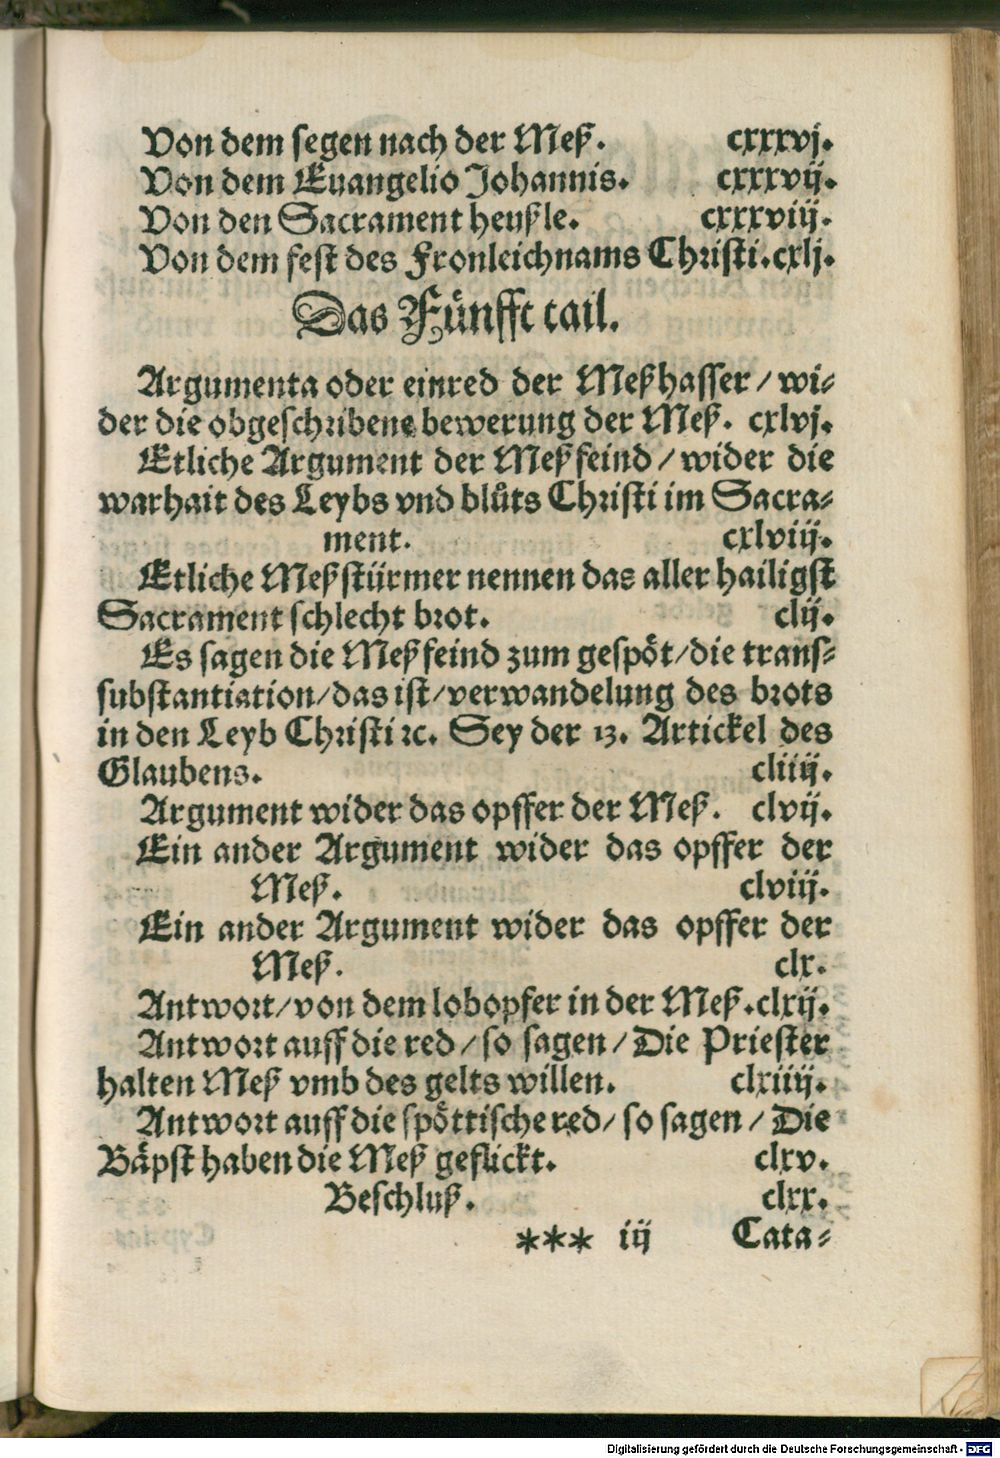 Von dem segen nach der Meß. cxxxvj.
Von dem Euangelio Johannis. cxxxvij.
Von den Sacrament heußle. cxxxviij.
Von dem fest des Fronleichnams Christi. cxlj.
Das Fünfft tail.
Argumenta oder einred der Meßhasser / wi-
der die obgeschribene bewerung der Meß. cxlvj.
Etliche Argument der Meßfeind / wider die
warhait des Leybs vnd blůts Christi im Sacra-
ment. cxlviij.
Etliche Meßstürmer nennen das aller hailigst
Sacrament schlecht brot. clij.
Es sagen die Meßfeind zum gespöt / die trans-
substantiation / das ist / verwandelung des brots
in den Leyb Christi ꝛc. Sey der 13. Artickel des
Glaubens. cliiij.
Argument wider das opffer der Meß. clvij.
Ein ander Argument wider das opffer der
Meß. clviij.
Ein ander Argument wider das opffer der
Meß. clx.
Antwort / von dem lobopfer in der Meß. clxij.
Antwort auff die red / so sagen / Die Priester
halten Meß vmb des gelts willen. clxiiij.
Antwort auff die spöttische red / so sagen / Die
Bäpst haben die Meß geflickt. clxv.
Beschluß. clxx.
*** iij Cata-
Digitalisierung gefördert durch die Deutsche Forschungsgemeinschaft - DFG